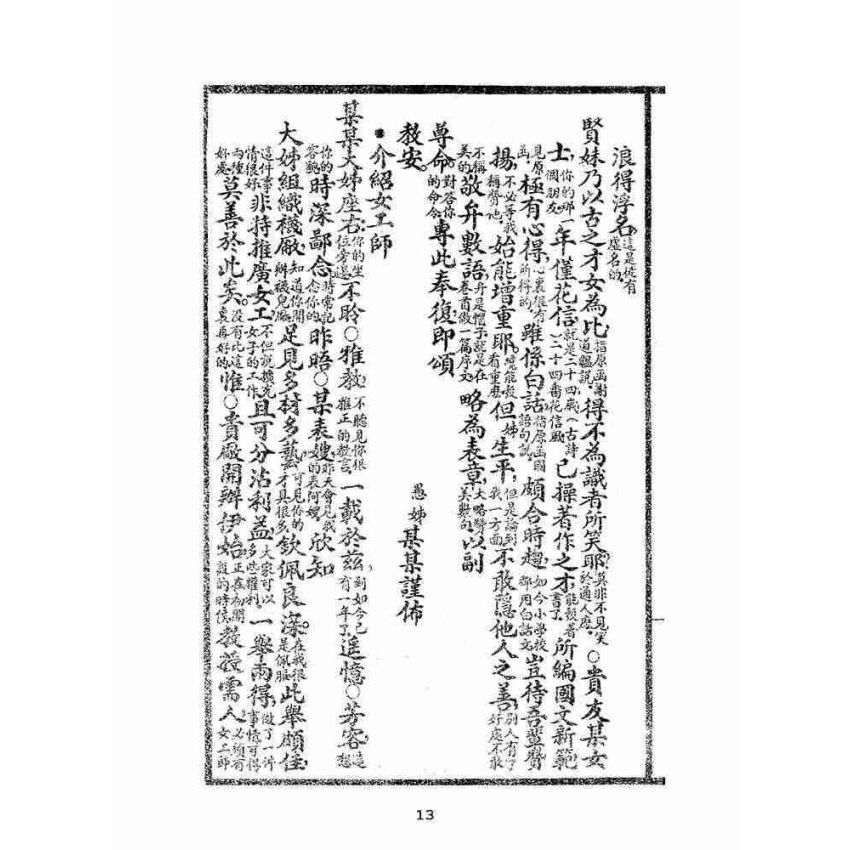 浪得浮名。這是徒有虛名的
賢妹乃以古之才女為比指原函謝道韞說得不為識者所笑耶。莫非不見笑於通人麽○貴友某女
士你的那個朋友一年僅花信就是二十四歲(古詩二十四番花信風)已操著作之才能彀著書了所編國文新範
見原函極有心得心裏很有所得的雖係白話指原函國語句說頗合時趨如今小學校都用白話文豈待吾輩贊
揚不必等我稱贊他始能增重耶。纔能彀看重麽但姊生平但是論到我一方面不敢隱他人之善別人有了好處不敢
不稱美的敬弁數語弁是帽子就是在卷首做一篇序文略為表章大略贊美數句以副
尊命。對答你的命令專此奉復即頌
教安。
愚姊某某謹佈
介紹女工師
某某大姊座右你的坐位旁邊不聆○雅教不聽見你很雅正的教言一載於茲到如今已有一年了遙憶○芳容這想
你的容貌時深鄙念時常記念你的昨晤○某表嫂昨天會見我的表阿嫂欣知
大姊組織襪廠知道你開辦襪兒廠足見多材多藝可見你的才具很多欽佩良深。在我很是佩服此舉頗佳
這件事情很好非特推廣女工不但說擴充女子的工作且可分沾利益大家可以多些權利一舉兩得做了一件事情可得
兩種好處莫善於此矣。沒有比這裏再好的惟○貴廠開辦伊始正在初開辦的時候教授需人必須有女工師
13